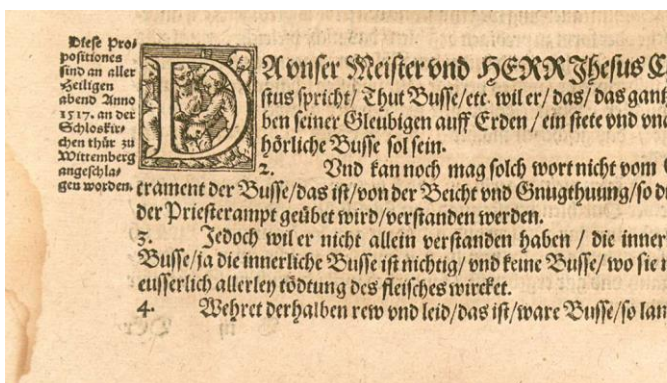 Diese Pro⸗
positiones
sind an aller
Heiligen
abend Anno
1517. an der
Schloskir⸗
chen thür zu
Wittemberg
angeschla⸗
gen worden.
DA vnser Meister vnd HERR Jhesus C
stus spricht/ Thut Busse/etc. wil er/ das/ das gant
ben seiner Gleubigen auff Erden / ein stete vnd vna
hörliche Busse sol sein.
2. Vnd kan noch mag solch wort nicht vom
crament der Busse/das ist/von der Beicht vnd Gnugthuung/so d
der Priesterampt geübet wird/verstanden werden.
3. Jedoch wil er nicht allein verstanden haben / die inner
Busse/ja die innerliche Busse ist nichtig/ vnd keine Busse/ wo sie n
eusserlich allerley tödtung des fleisches wircket.
4. Wehret derhalben rew vnd leid/das ist/ware Busse/so lan